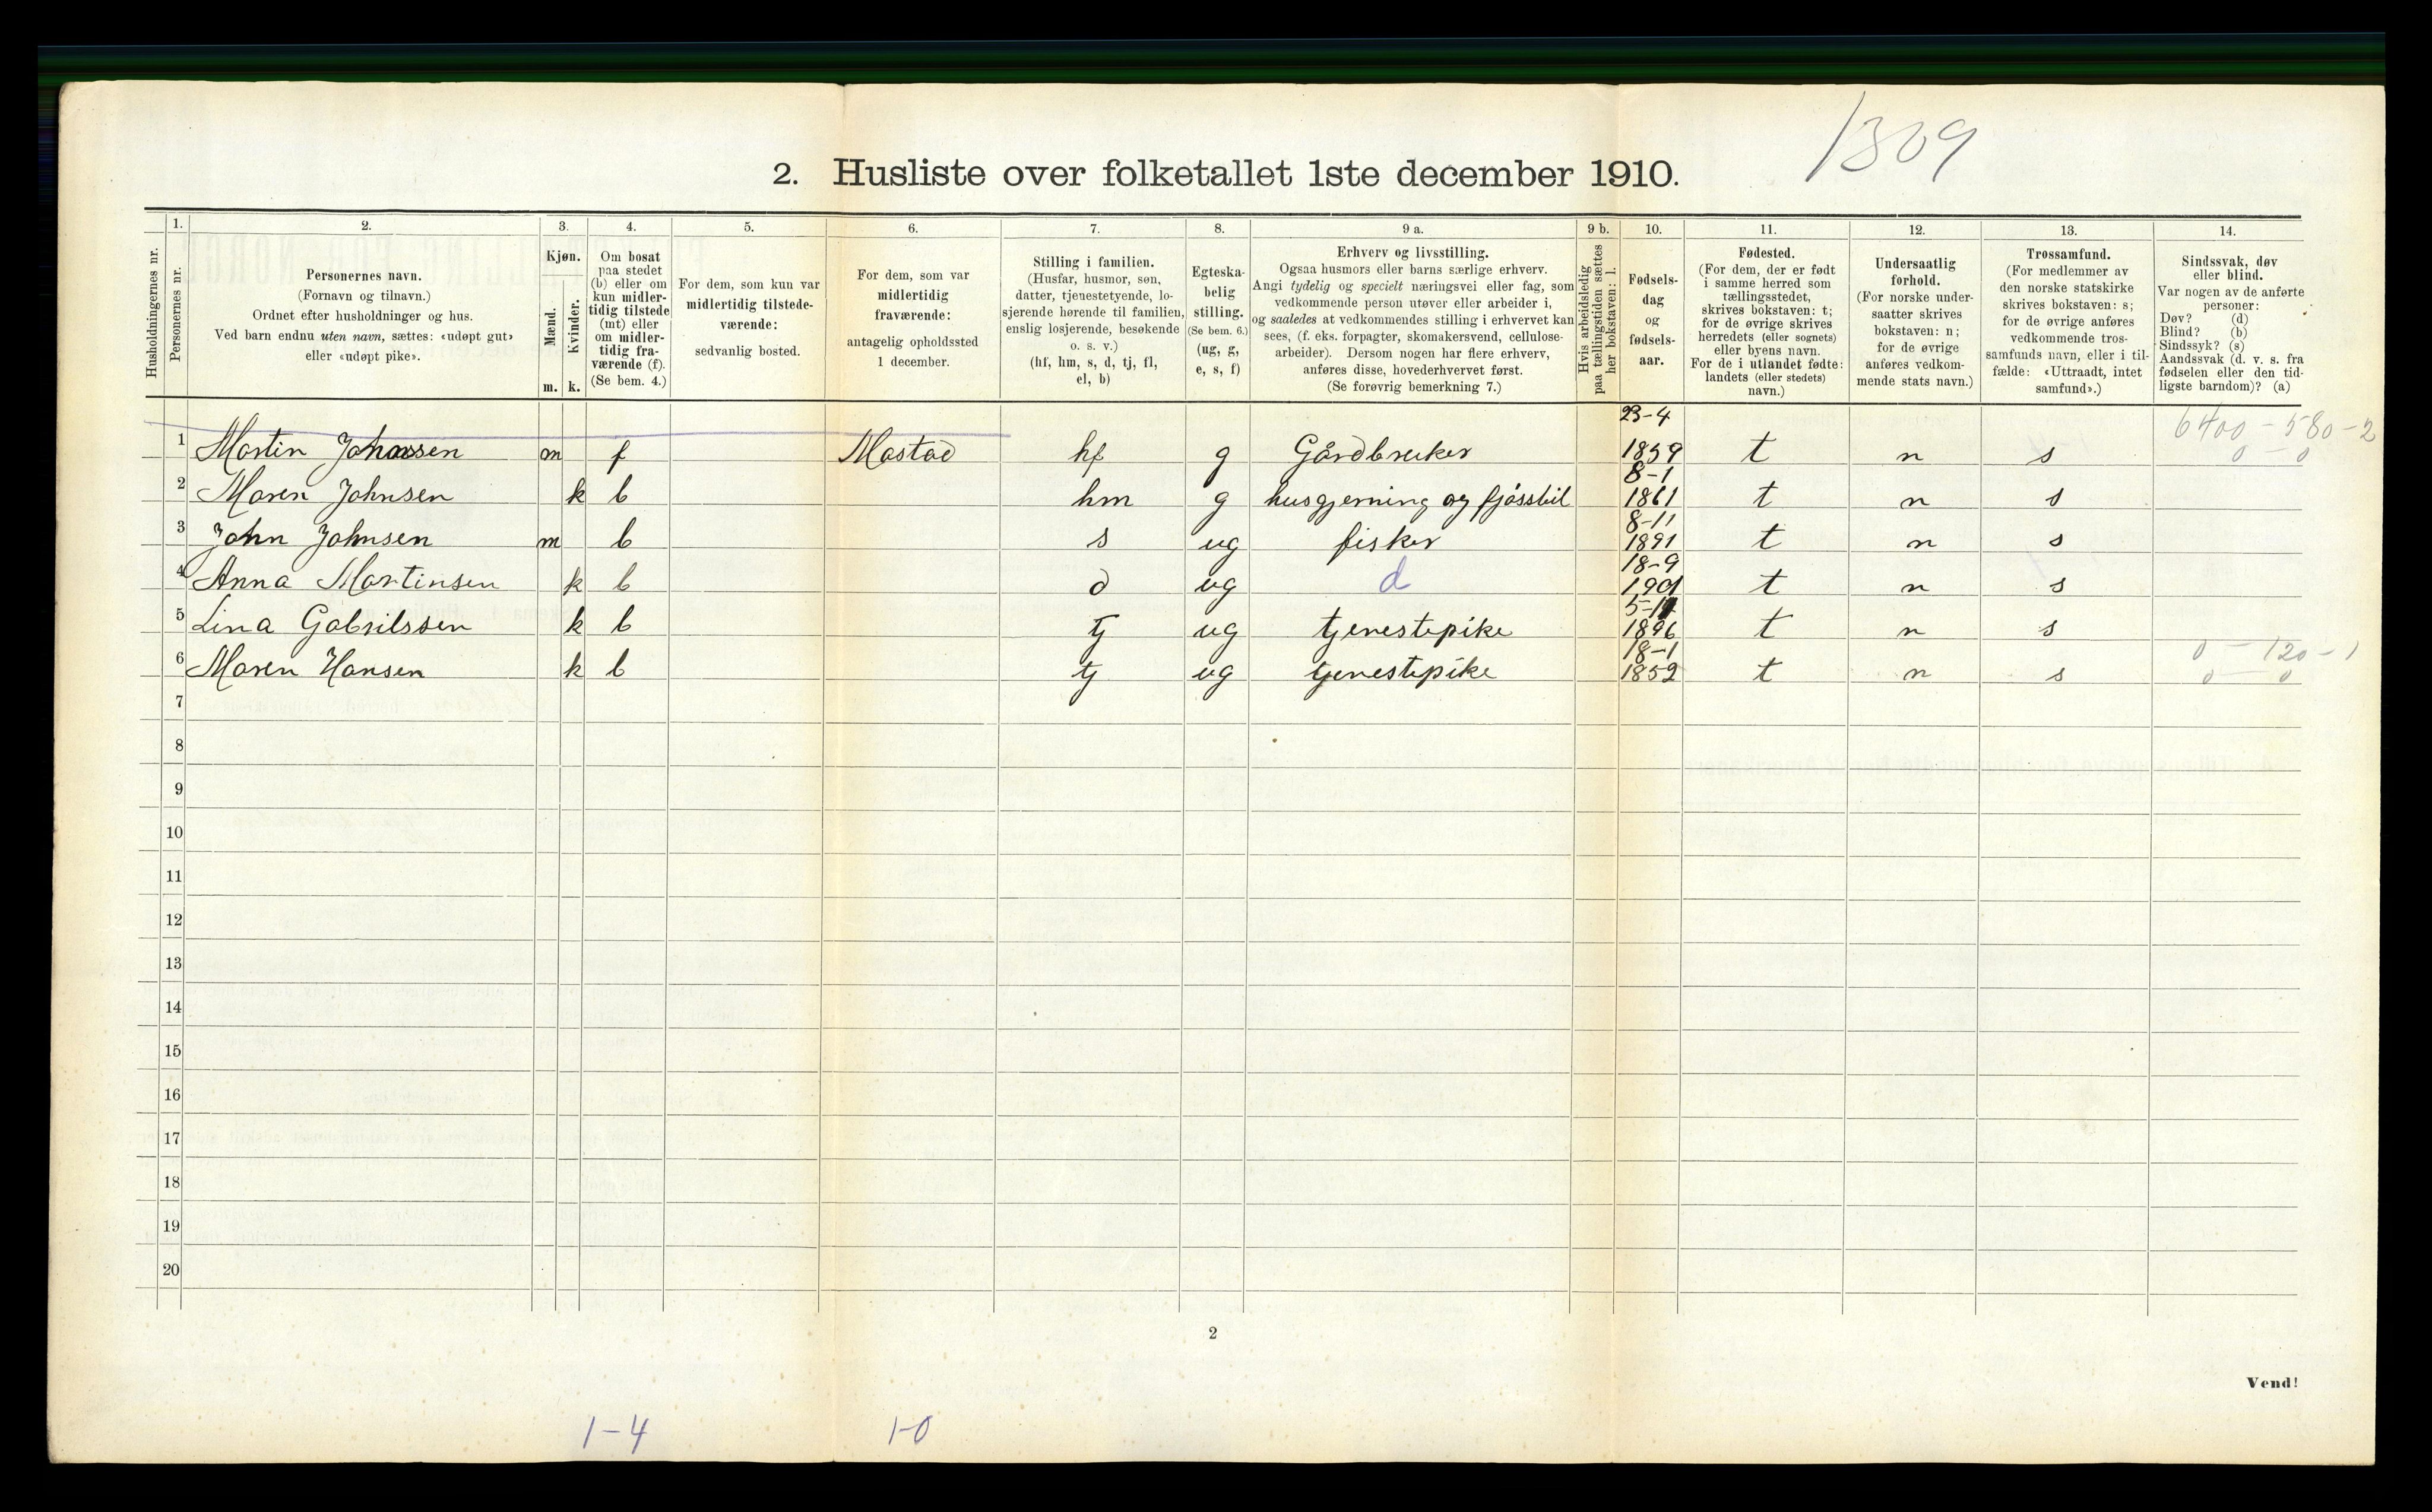 1309
2. Husliste over folketallet 1ste december 1910.
Husholdningernes nr.
1.
Personernes nr.
2.
Personernes navn.
(Fornavn og tilnavn.)
Ordnet efter husholdninger og hus.
Ved barn endnu uten navn, sættes: «udøpt gut»
eller «udøpt pike».
3.
Kjøn.
Mænd.
Kvinder.
m. k.
4.
Om bosat
paa stedet
(b) eller om
kun midler-
tidig tilstede
(mt) eller
om midler-
tidig fra-
værende (f).
(Se bem. 4.)
5.
For dem, som kun var
midlertidig tilstede-
værende:
sedvanlig bosted.
6.
For dem, som var
midlertidig
fraværende:
antagelig opholdssted
1 december.
7.
Stilling i familien.
(Husfar, husmor, søn,
datter, tjenestetyende, lo-
sjerende hørende til familien,
enslig losjerende, besøkende
o. s. v.)
(hf, hm, s, d, tj, fl,
el, b)
8.
Egteska-
belig
stilling.
(Se bem. 6.)
(ug, g,
e, s, f)
9 a.
Erhverv og livsstilling.
Ogsaa husmors eller barns særlige erhverv.
Angi tydelig og specielt næringsvei eller fag, som
vedkommende person utøver eller arbeider i,
og saaledes at vedkommendes stilling i erhvervet kan
sees, (f. eks. forpagter, skomakersvend, cellulose-
arbeider). Dersom nogen har flere erhverv,
anføres disse, hovederhvervet først.
(Se forøvrig bemerkning 7.)
9 b.
Hvis arbeidsledig
paa tællingstiden sættes
her bokstaven: l.
10.
Fødsels-
dag
og
fødsels-
aar.
11.
Fødested.
(For dem, der er født
i samme herred som
tællingsstedet,
skrives bokstaven: t;
for de øvrige skrives
herredets (eller sognets)
eller byens navn.
For de i utlandet fødte:
landets (eller stedets)
navn.)
12.
Undersaatlig
forhold.
(For norske under-
saatter skrives
bokstaven: n;
for de øvrige
anføres vedkom-
mende stats navn.)
13.
Trossamfund.
(For medlemmer av
den norske statskirke
skrives bokstaven: s;
for de øvrige anføres
vedkommende tros-
samfunds navn, eller i til-
fælde: «Uttraadt, intet
samfund».)
14.
Sindssvak, døv
eller blind.
Var nogen av de anførte
personer:
Døv? (d)
Blind? (b)
Sindssyk? (s)
Aandssvak (d. v. s. fra
fødselen eller den tid-
ligste barndom)? (a)
6400 - 580 - 2
0 - 0
1 Martin Johnsen m f Mostad hf g Gårdbruker 23-4 1859 t n s
2 Maren Johnsen k b hm g husgjerning og fjøsstel 8-1 1861 t n s
3 John Johnsen m b s ug fisker 8-11 1891 t n s
4 Anna Martinsen k b d ug d 18-9 1901 t n s
5 Lina Gabrilssen k b tj ug tjenestepike 1896 t n s
0 - 120 - 1
6 Maren Hansen k b tj ug tjenestepike 18-1 1852 t n s 0 0
7
8
9
10
11
12
13
14
15
16
17
18
19
20
2
Vend!
1-4 1-0